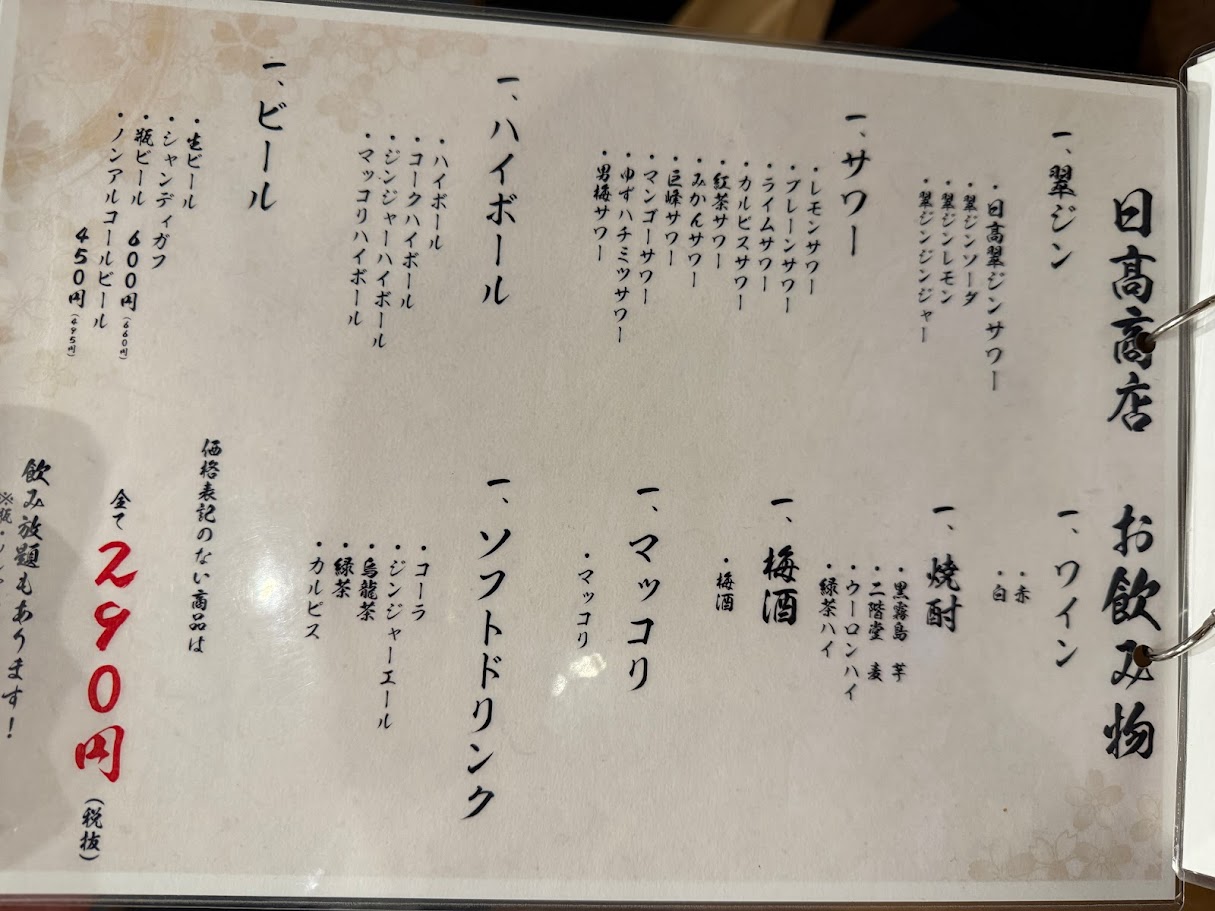 日高商店 お飲み物
一、翠ジン
・日高翠ジンサワー
・翠ジンソーダ
・翠ジンレモン
・翠ジンジンジャー
一、サワー
・レモンサワー
・プレーンサワー
・ライムサワー
・カルピスサワー
・紅茶サワー
・みかんサワー
・巨峰サワー
・マンゴーサワー
・ゆずハチミツサワー
・男梅サワー
一、ハイボール
・ハイボール
・コークハイボール
・ジンジャーハイボール
・マッコリハイボール
一、ビール
・生ビール
・シャンディガフ
・瓶ビール 600円(660円)
・ノンアルコールビール
450円(495円)
一、ワイン
・赤
・白
一、焼酎
・黒霧島 芋
・二階堂 麦
・ウーロンハイ
・緑茶ハイ
一、梅酒
・梅酒
一、マッコリ
・マッコリ
一、ソフトドリンク
・コーラ
・ジンジャーエール
・烏龍茶
・緑茶
・カルピス
価格表記のない商品は
全て290円(税抜)
飲み放題もあります!
※瓶・ノンア